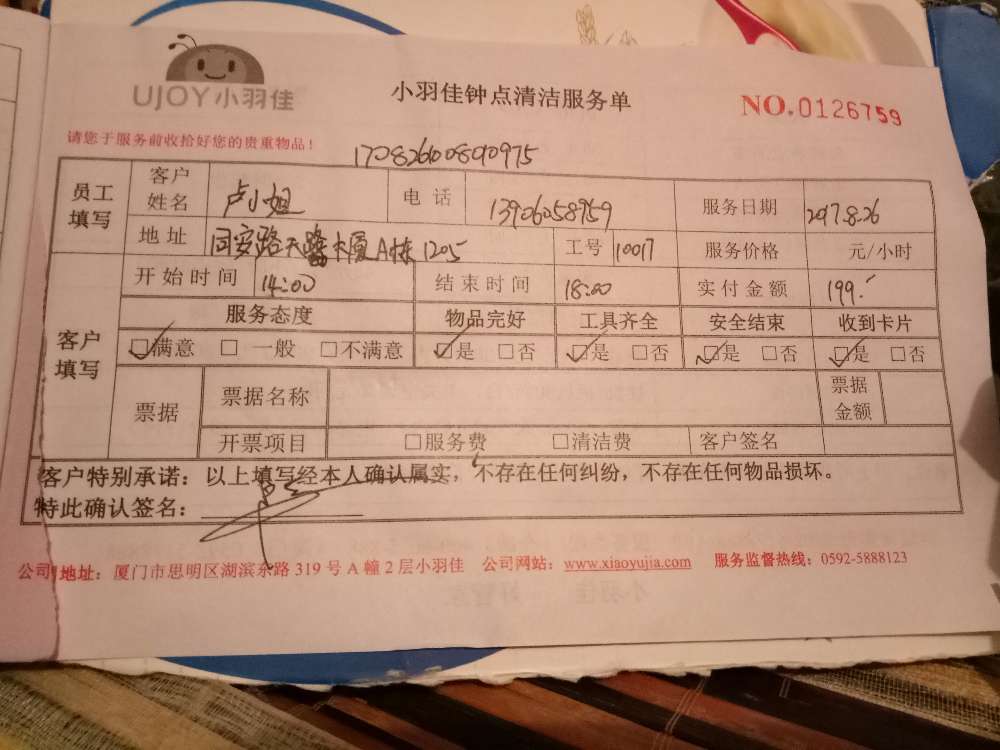 UJOY小羽佳
小羽佳钟点清洁服务单
NO.0126759
请您于服务前收拾好您的贵重物品！
员工填写 客户姓名 卢小姐 电话 13906058959 服务日期 2017.8.26
地址 同安路天鹭大厦A栋1205 工号 10017 服务价格 元/小时
客户填写 开始时间 14:00 结束时间 18:00 实付金额 199.
服务态度 物品完好 工具齐全 安全结束 收到卡片
☑满意 □一般 □不满意 ☑是 □否 ☑是 □否 ☑是 □否 ☑是 □否
票据 票据名称 票据金额
开票项目 □服务费 □清洁费 客户签名
客户特别承诺：以上填写经本人确认属实，不存在任何纠纷，不存在任何物品损坏。
特此确认签名：
公司地址：厦门市思明区湖滨东路319号A幢2层小羽佳 公司网站：www.xiaoyujia.com 服务监督热线：0592-5888123